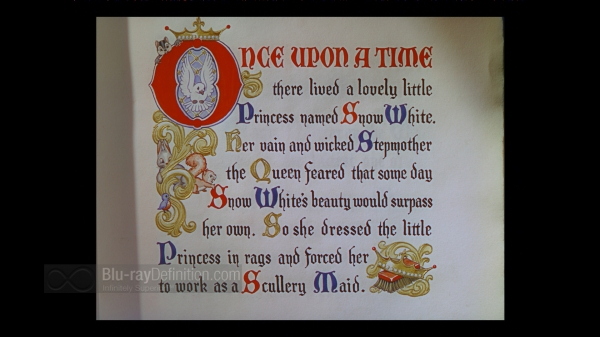 ONCE UPON A TIME
there lived a lovely little
Princess named Snow White.
Her vain and wicked Stepmother
the Queen feared that some day
Snow White's beauty would surpass
her own. So she dressed the little
Princess in rags and forced her
to work as a Scullery Maid.
Blu-rayDefinition.com